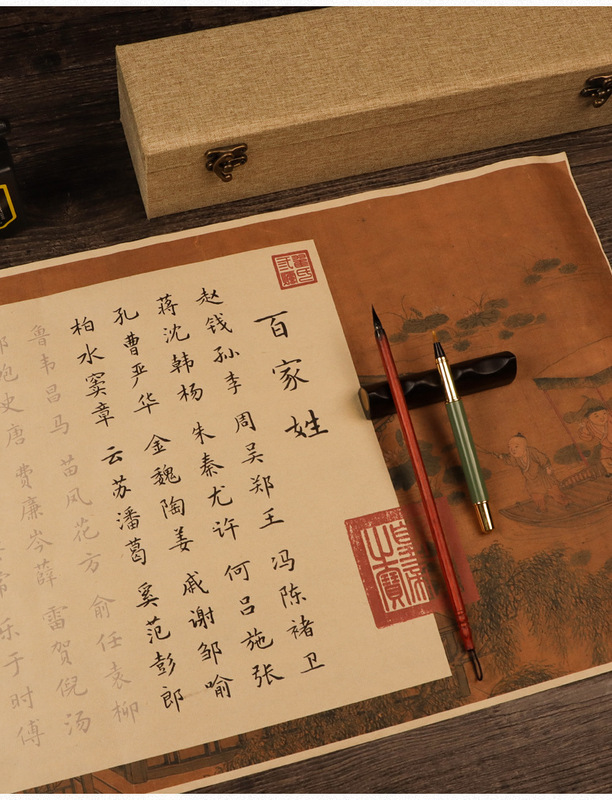 百家姓
赵钱孙李 周吴郑王 冯陈褚卫
蒋沈韩杨 朱秦尤许 何吕施张
孔曹严华 金魏陶姜 戚谢邹喻
柏水窦章 云苏潘葛 奚范彭郎
鲁韦昌马 苗凤花方 俞任袁柳
鲍史唐 费廉岑薛 雷贺倪汤
常 乐于时傅